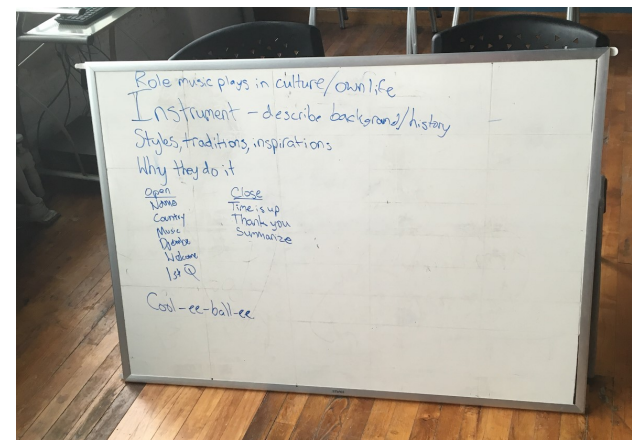 Role music plays in culture/own life
Instrument - describe background/history
Styles, traditions, inspirations
Why they do it
Open
Name
Country
Music
Djembe
Welcome
1st Q
Close
Time is up
Thank you
Summarize
Cool-ee-ball-ee